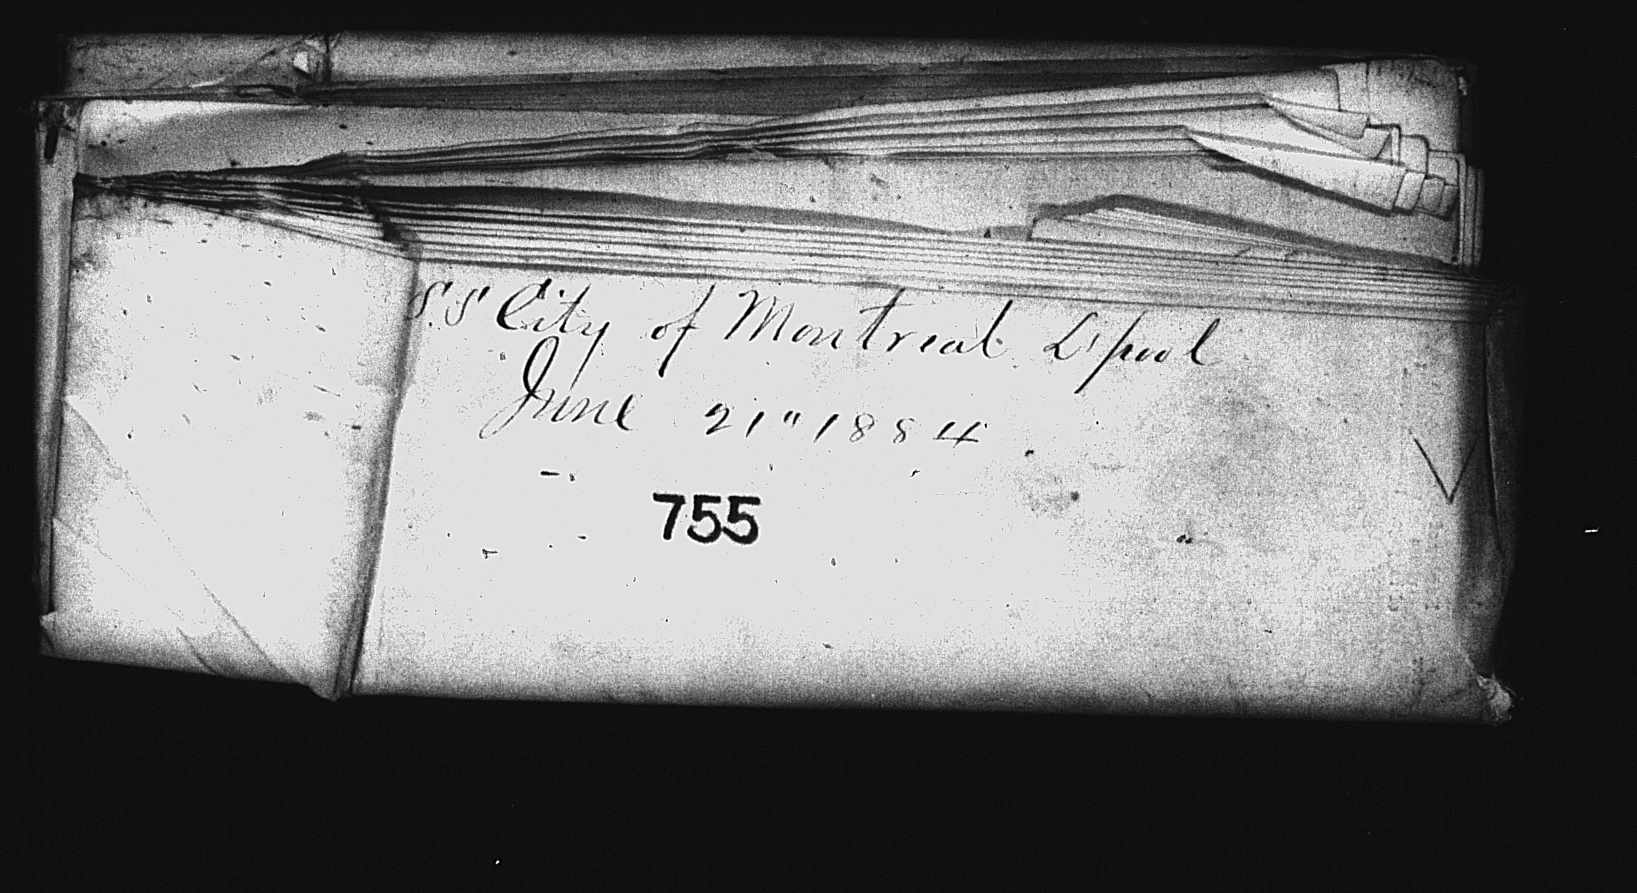 S.S City of Montreal L'pool
June 21" 1884
755